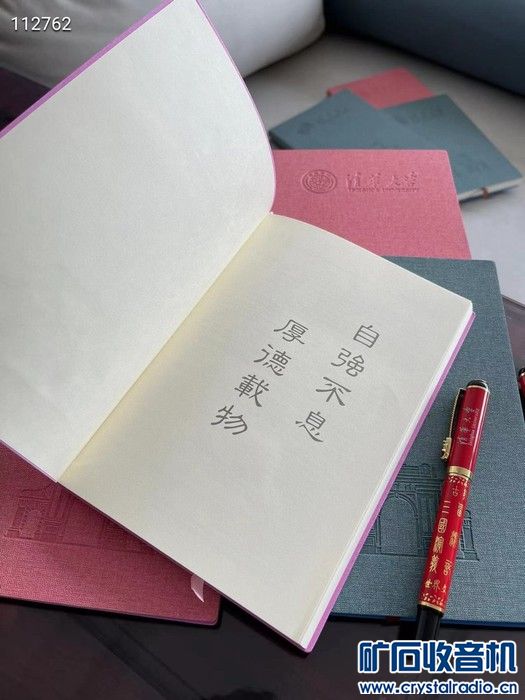 112762
清華大学
TSINGHUA UNIVERSITY
自強不息
厚德載物
三國演義
矿石收音机
www.crystalradio.cn